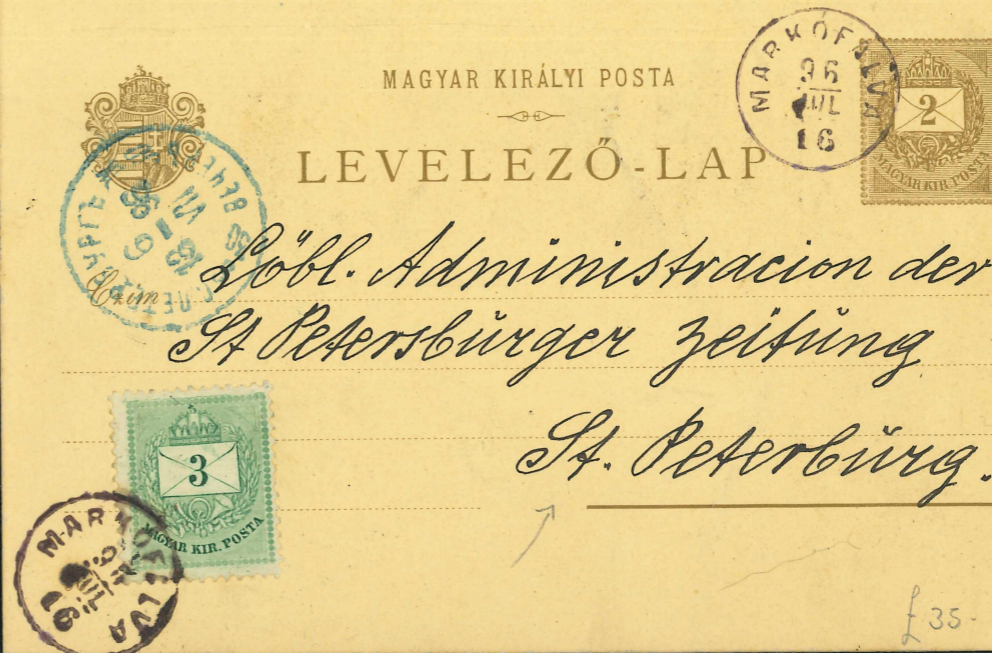 MAGYAR KIRÁLYI POSTA
LEVELEZŐ-LAP
MARKÓFALVA
96
JUL
16
2
MAGYAR KIR. POSTA
Czim
Löbl. Administracion der
St Petersbürger Zeitüng
St. Peterbürg.
3
MAGYAR KIR. POSTA
MARKÓFALVA
96
JUL
16
£35-